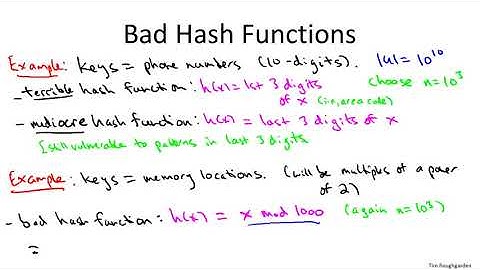 Bad Hash Functions
Example: keys = phone numbers (10-digits). |u| = 10^10
- terrible hash function: h(x) = 1st 3 digits of x (i.e., area code) choose n=10^3
- mediocre hash function: h(x) = last 3 digits of x
[still vulnerable to patterns in last 3 digits
Example: keys = memory locations. (will be multiples of a power of 2)
- bad hash function: h(x) = x mod 1000 (again n=10^3)
=
Tim Roughgarden